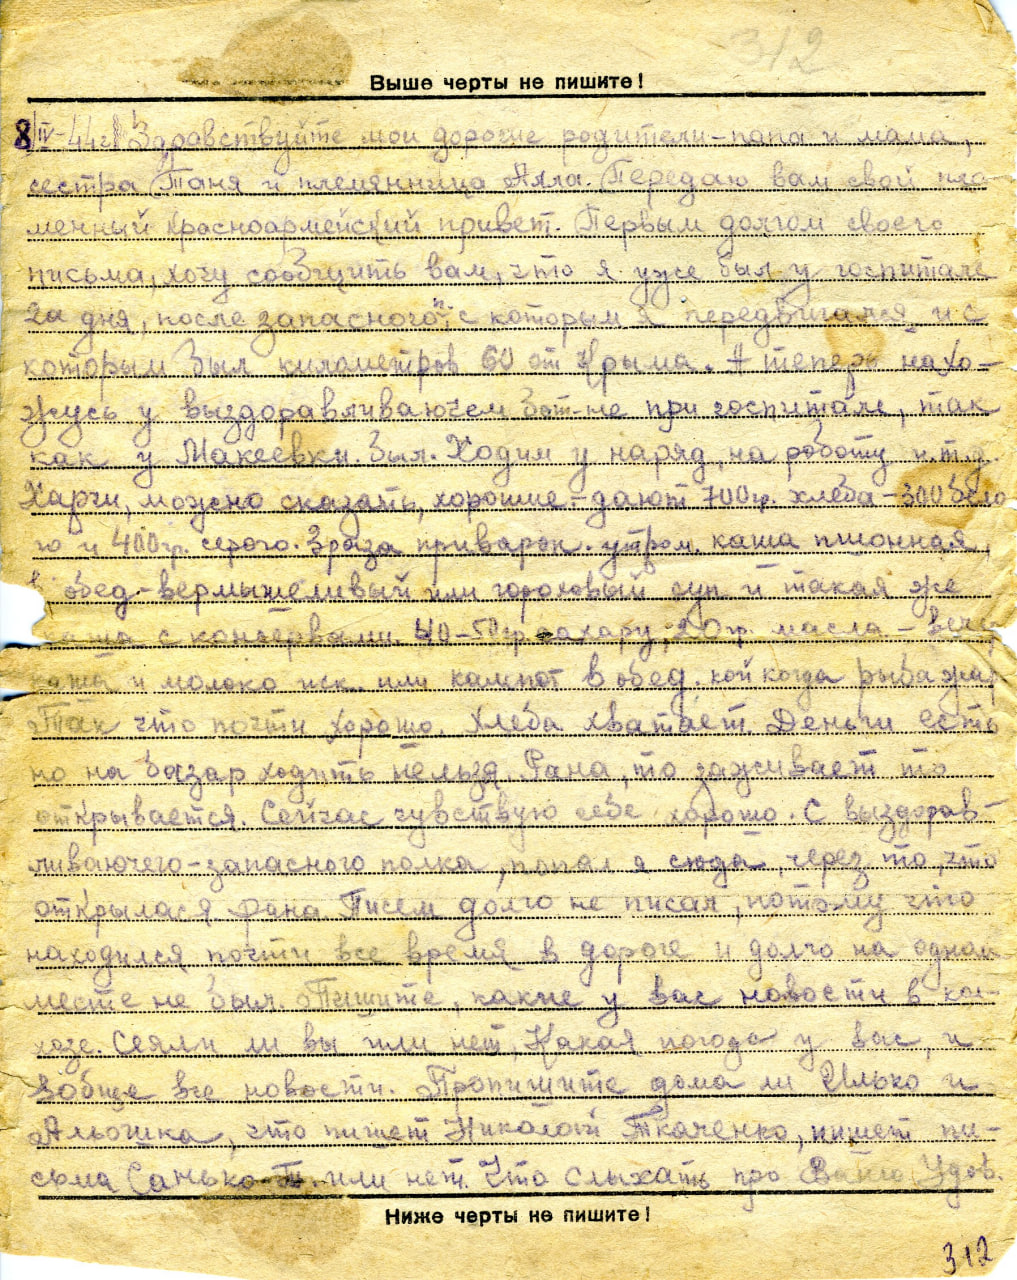 312
Выше черты не пишите!
8/IV-44г. Здравствуйте мои дорогие родители-папа и мама,
сестра Таня и племянница Алла. Передаю вам свой пла-
менный красноармейский привет. Первым долгом своего
письма, хочу сообщить вам, что я уже был у госпитале
дня, после запасного п. с которым я передвигался и с
которым был километров 60 от Крыма. А теперь нахо-
жусь у выздоравливаючем бат-не при госпитале, так
как у Макеевки был. Ходим у наряд, на роботу и.т.д.
Харчи, можно сказать, хорошие - дают 700гр. хлеба - 300 бело
го и 400гр. серого. 3 раза приварок. утром. каша пшонная,
в обед-вермышеливый или гороховый суп и такая же
каша с консервами. 40-50гр. сахару, 20гр. масла - вечер
каша и молоко или кампот в обед. кой когда рыба жар
Так что почти хорошо. Хлеба хватает. Деньги есть
но на базар ходить нельзя. Рана, то заживает то
открывается. Сейчас чувствую себе хорошо. С выздорав-
ливаючего-запасного полка, попал я сюда, через то, что
открылася рана. Писем долго не писал, потому что
находился почти все время в дороге и долго на одном
месте не был. Пишите, какие у вас новости в кол-
хозе. Сеяли ли вы или нет, Какая погода у вас, и
вобще все новости. Пропишите дома ли Илько и
Альошка, что пишет Николай Ткаченко, пишет пи-
сьма Санько Т. или нет. Что слыхать про Ваню Удов.
Ниже черты не пишите!
312